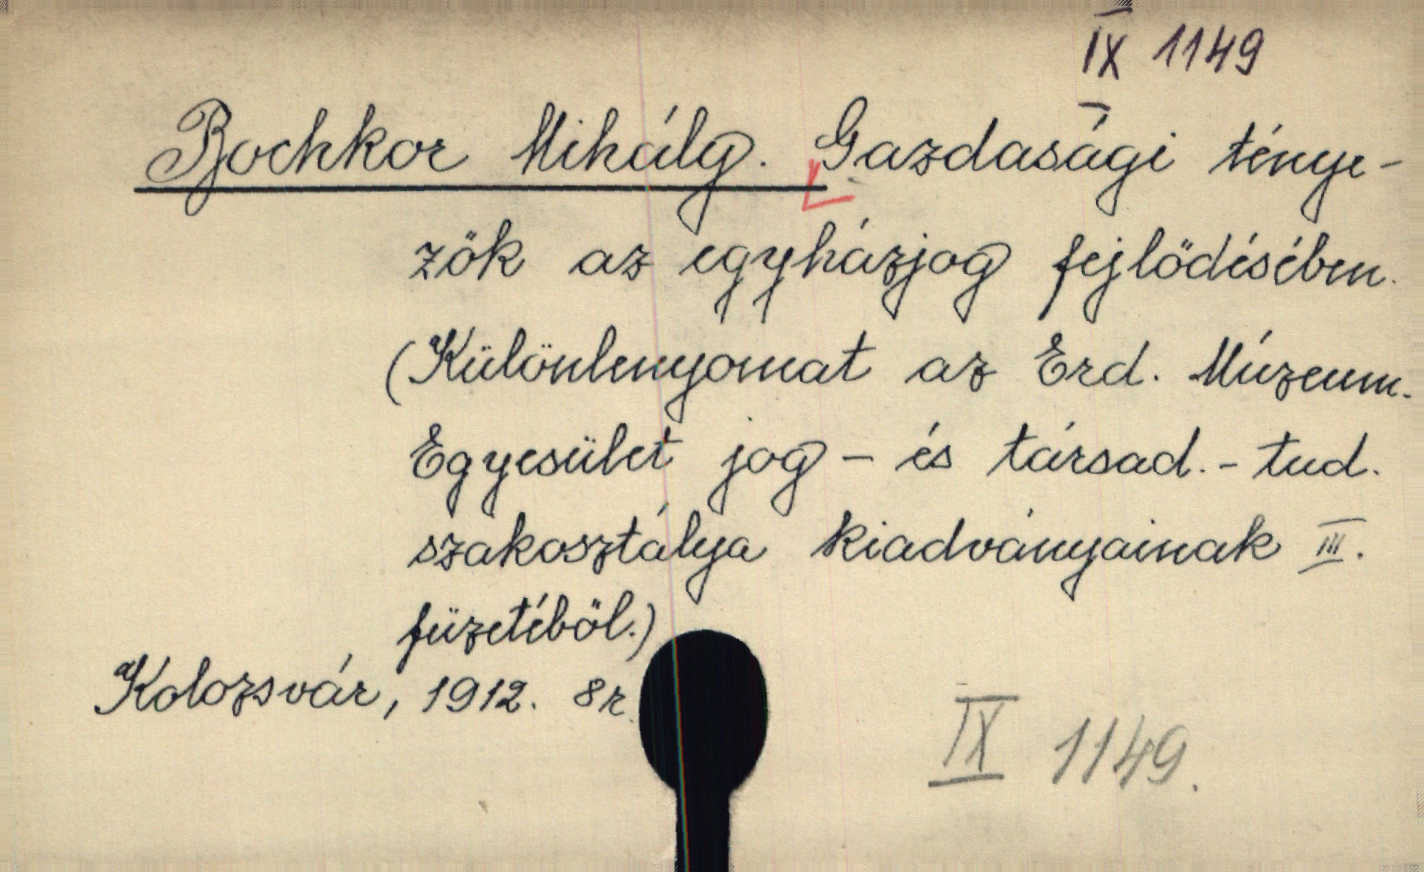 IX 1149
Bochkor Mihály. Gazdasági ténye-
zők az egyházjog fejlődésében.
(Különlenyomat az Erd. Múzeum-
Egyesület jog- és társad.-tud.
szakosztálya kiadványainak III.
füzetéből.)
Kolozsvár, 1912. 8r.
IX 1149.